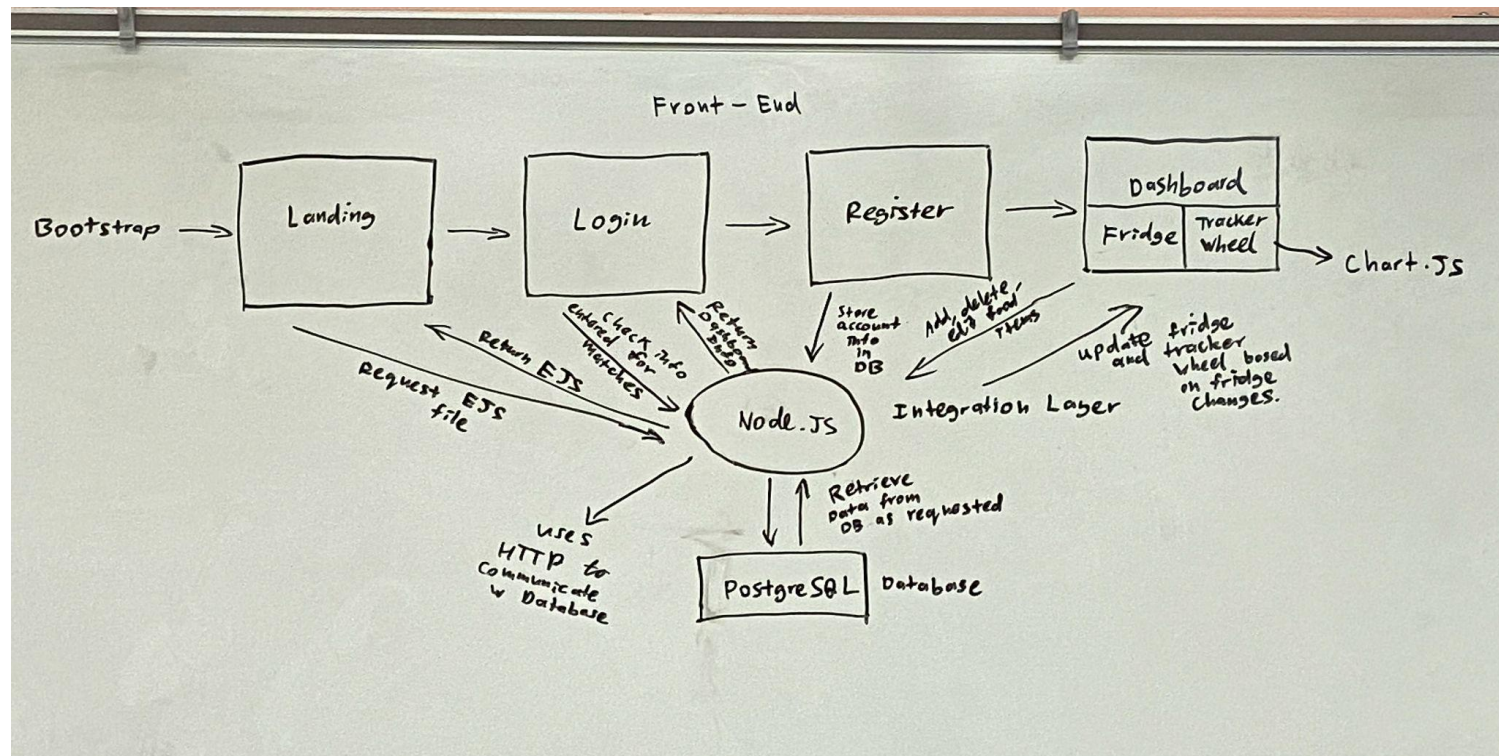 Front-End
Bootstrap
Landing
Login
Register
Dashboard
Fridge
Tracker
Wheel
Chart.JS
Request EJS
file
Return EJS
Check info
entered for
matches
Return
Dashboard
Store
account
info
in
DB
Add, delete,
edit food
items
update fridge
and tracker
wheel based
on fridge
changes.
Integration Layer
Node.JS
uses
HTTP to
communicate
w Database
Retrieve
Data from
DB as requested
PostgreSQL
Database